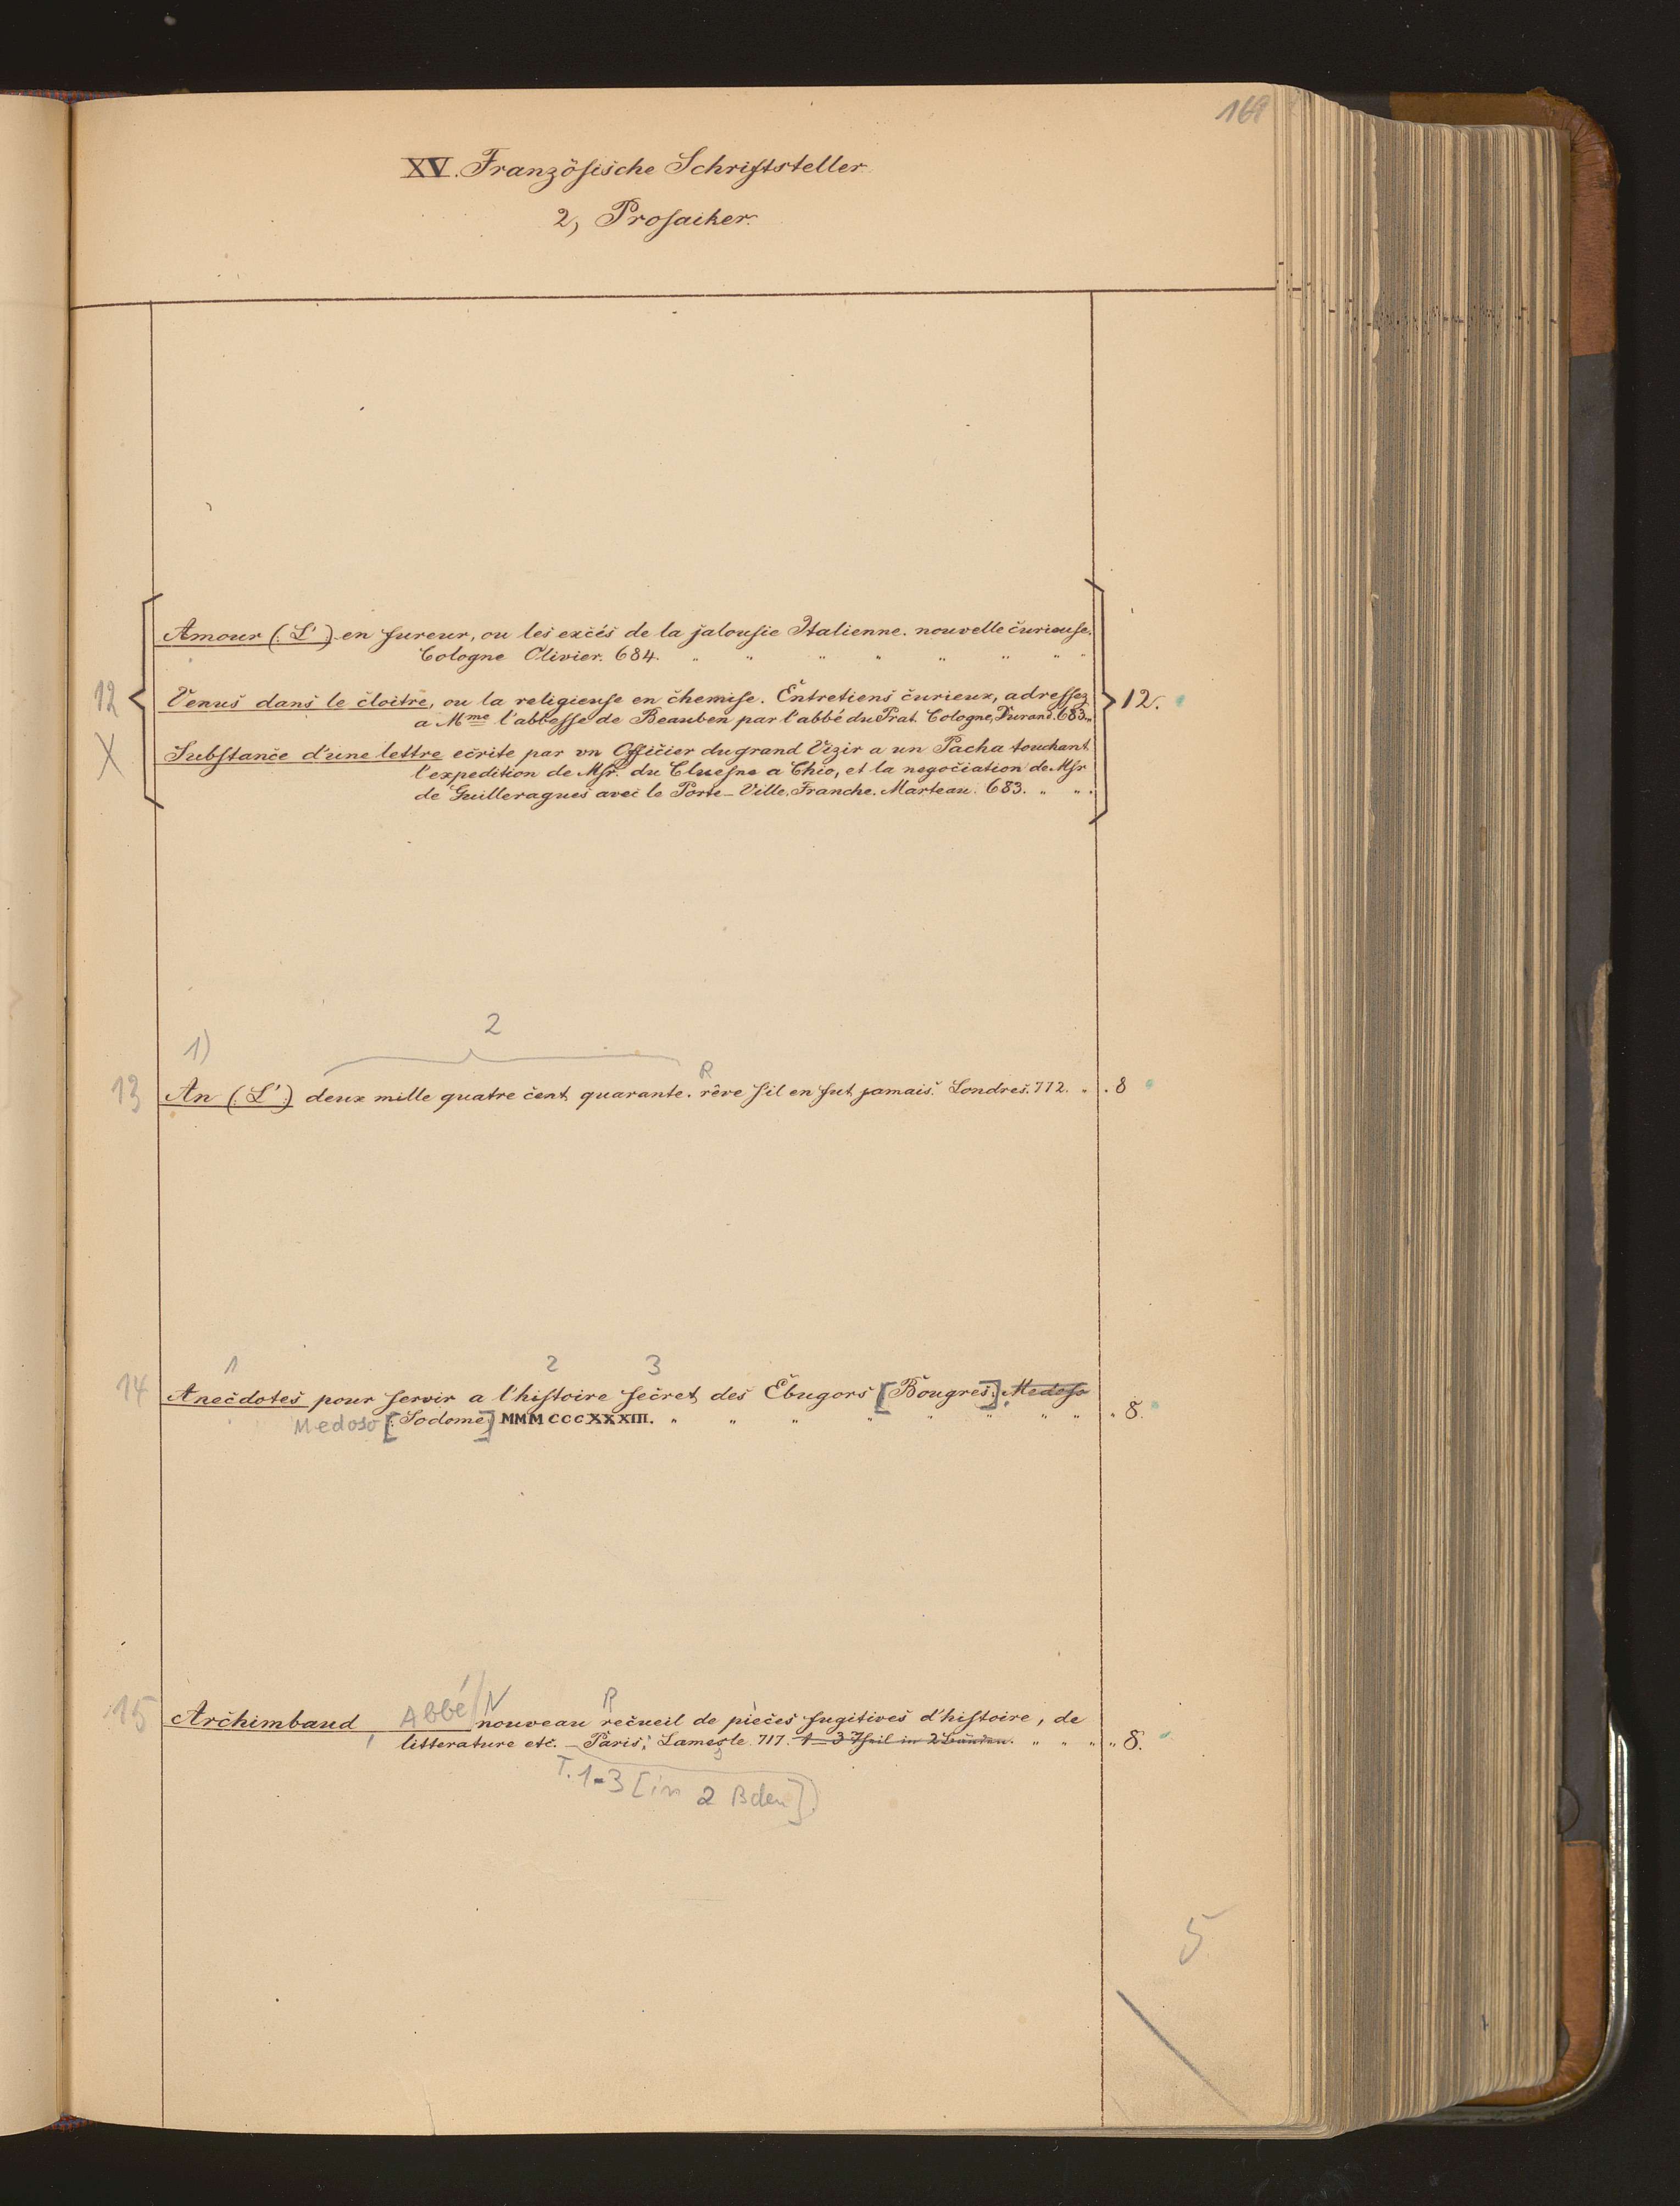 169
XV. Französische Schriftsteller.
2, Prosaiker.
Amour (: L' :) en fureur, ou les excés de la jalousie Italienne. nouvelle curieuse.
Cologne Olivier. 684. " " " " " " " "
12 Venus dans le cloitre, ou la religieuse en chemise. Entretiens curieux, adressez 12.
a Mme l'abbesse de Beauben par l'abbé du Prat. Cologne, Durand. 683. "
X Substance d'une lettre ecrite par un Officier du grand Vizir a un Pacha touchant
l'expedition de Msr. du Cluesne a Chio, et la negociation de Msr
de Guilleragues avec le Porte - Ville, Franche. Marteau. 683. " "
1) 2
R
13 An (: L' :) deux mille quatre cent quarante. rêve s'il en fut jamais. Londres. 772. " . 8
1 2 3
14 Anecdotes pour servir a l'histoire secret des Ebugors [: Bougres :]. Medoso
Medoso [: Sodome :] MMMCCCXXXIII. " " " " " " " " " 8.
Abbé // N R
15 Archimbaud, nouveau recueil de pièces fugitives d'histoire, de
litterature etc. - Paris, Lamesle. 717. 1-3 Theil in 2 Bänden. " " " " 8.
T. 1-3 [in 2 Bden]
5